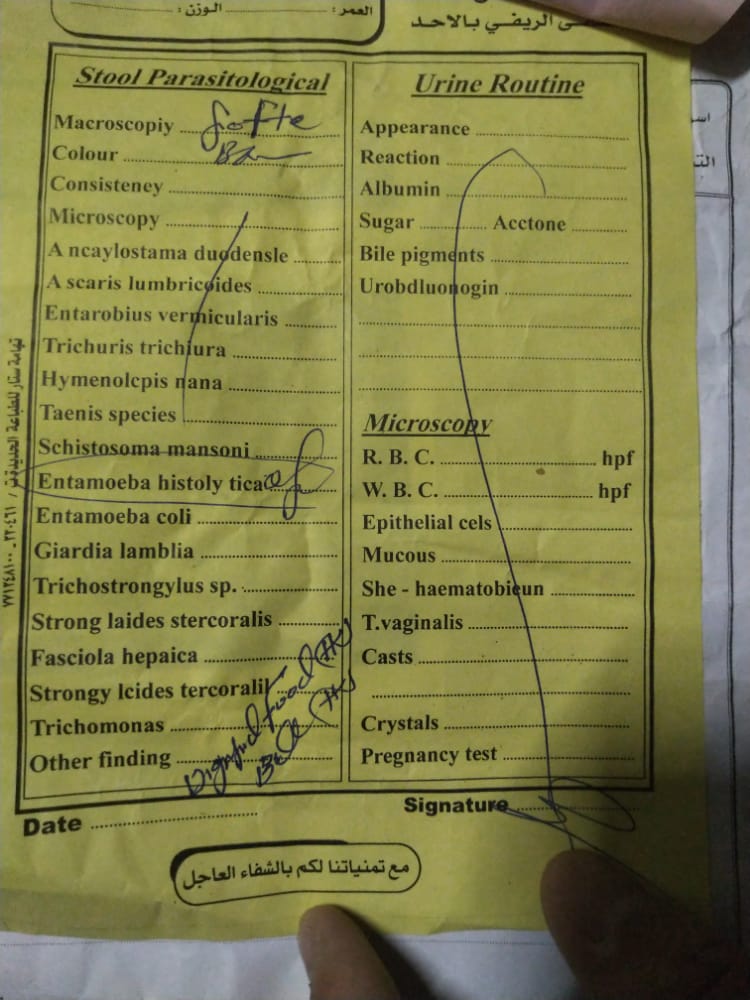 العمر : الوزن :
الريفي بالاحد
Stool Parasitological
Macroscopiy Softe
Colour
Consisteney
Microscopy
A ncaylostama duodensle
A scaris lumbricoides
Entarobius vermicularis
Trichuris trichiura
Hymenolcpis nana
Taenis species
Schistosoma mansoni
Entamoeba histoly tica
Entamoeba coli
Giardia lamblia
Trichostrongylus sp.
Strong laides stercoralis
Fasciola hepaica
Strongy lcides tercoralil
Trichomonas
Other finding
food
Date
Urine Routine
Appearance
Reaction
Albumin
Sugar Acctone
Bile pigments
Urobdluonogin
Microscopy
R. B. C. hpf
W. B. C. hpf
Epithelial cels
Mucous
She - haematobieun
T.vaginalis
Casts
Crystals
Pregnancy test
Signature
مع تمنياتنا لكم بالشفاء العاجل